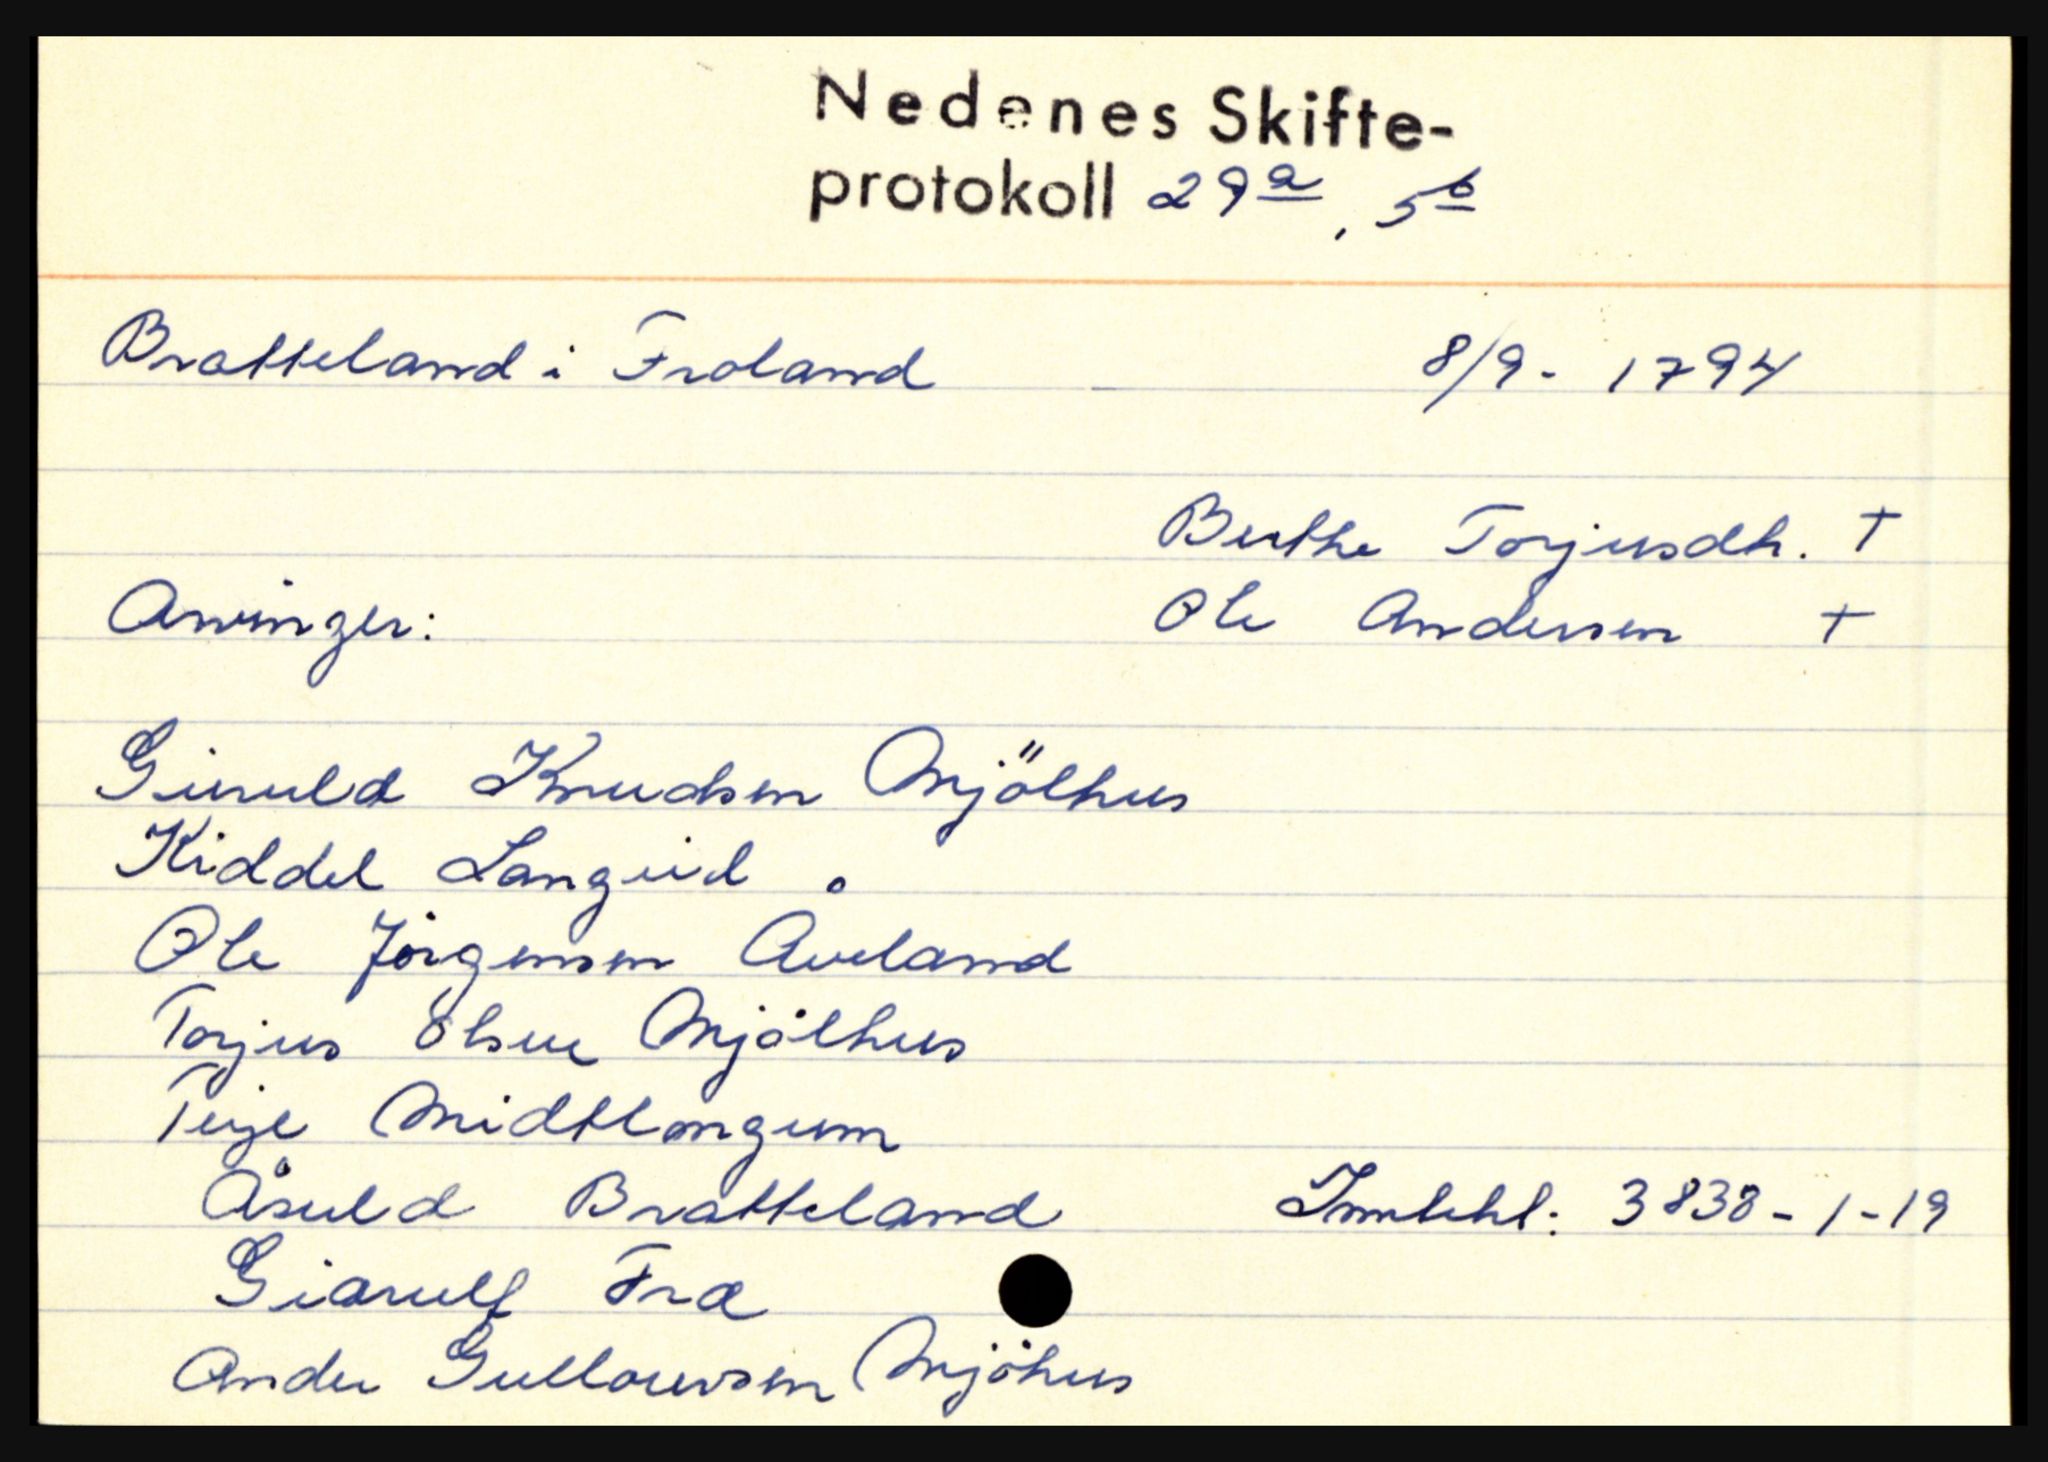 Nedenes Skifte-
protokoll 29a, 5b
Bratteland i Froland - 8/9- 1794
Berthe Torjusdtr. †
Arvinger: Ole Andersen †
Gieruld Knudsen Mjölhus
Kiddel Langeid
Ole Jörgensen Aveland
Torjus Olsen Mjölhus
Terje Midtlongum
Åsuld Bratteland 3838-1-19
Giarulf Fra
Ander Mjöhus